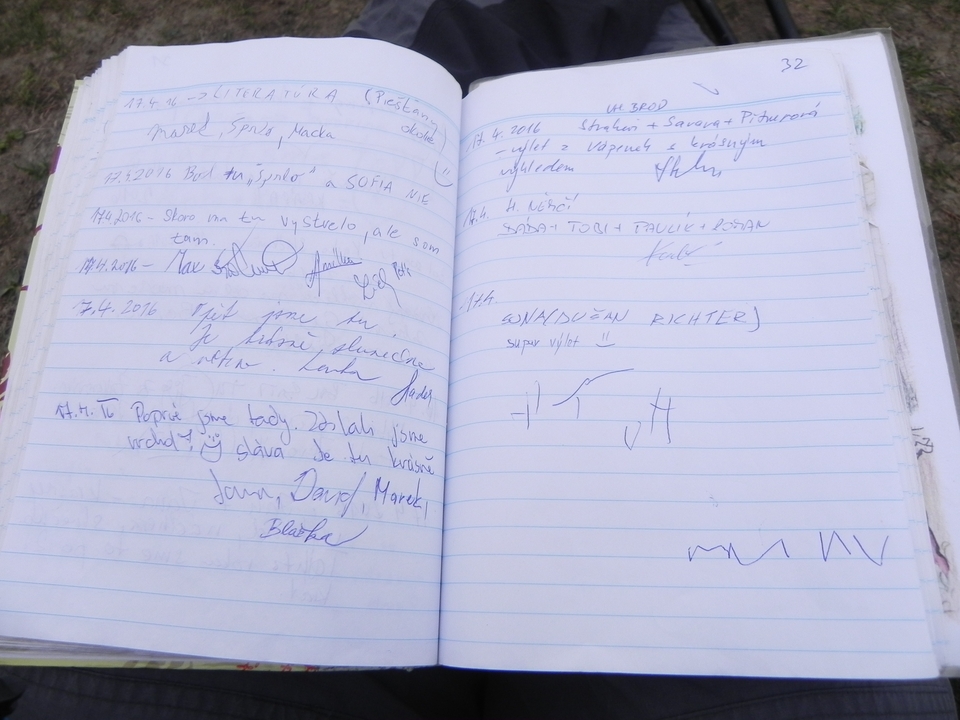 17.4.16 → LITERATÚRA (Piešťany
okolie)
Macka
17.4.2016 Bol tu „Šprlo“ a SOFIA NIE
17.4.2016 - Skoro ma tu vystrelo, ale som
tam.
17.4.2016 - Max
17.4.2016 Opět jsme tu.
Je krásně, slunečno
a Lenka
17.4.16 Poprvé jsme tady. Zdolali jsme
vrchol! sláva Je tu krásně
Jana, David, Marek,
Blažka
32
UH. BROD
17.4.2016 Strakovi + Savara + Pitnerová
- výlet z Vápenek s krásným
výhledem
17.4. H. Němčí
SÁĎA + TOBI + PAVLÍK + ROMAN
17.4.
SONA (DUŠAN RICHTER)
super výlet